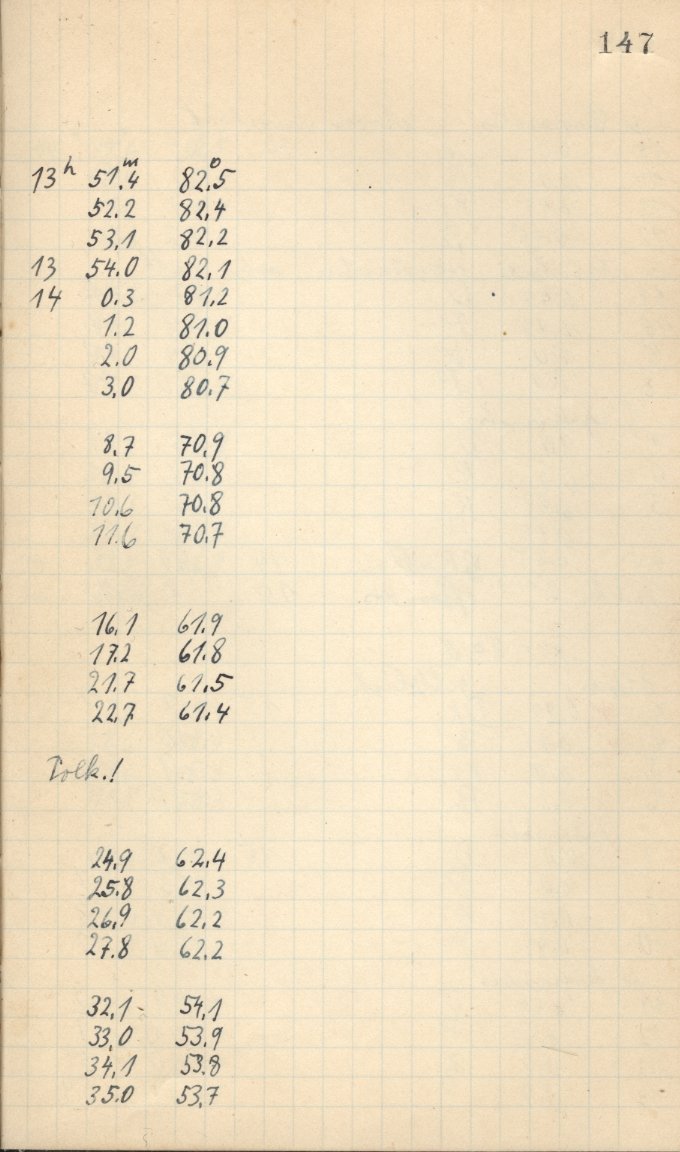 147
13h 51m.4 82o.5
52.2 82,4
53,1 82,2
13 54.0 82,1
14 0.3 81,2
1.2 81.0
2.0 80.9
3,0 80.7
8,7 70,9
9.5 70.8
10.6 70.8
11.6 70.7
16,1 61.9
17.2 61.8
21.7 61,5
22,7 61.4
24,9 62,4
25.8 62,3
26,9 62,2
27.8 62.2
32,1- 54,1
33,0 53.9
34,1 53.8
35.0 53,7